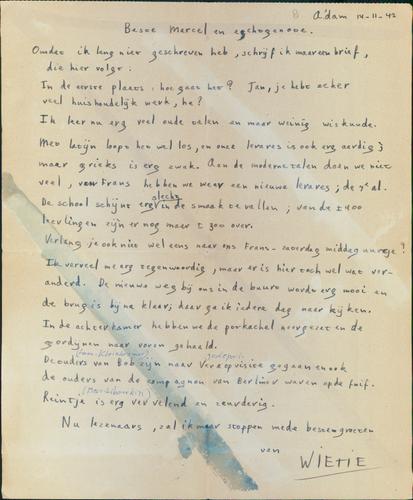 A'dam 14-11-42
Beste Marcel en echtgenoote.
Omdat ik lang niet geschreven heb, schrijf ik maar een brief,
die hier volgt:
In de eerste plaats: hoe gaat het? Jan, je hebt zeker
veel huishoudelijk werk, hè?
Ik leer nu erg veel oude talen en maar weinig wiskunde.
Met latijn loopt het wel los, en onze lerares is ook erg aardig;
maar grieks is erg zwak. Aan de moderne talen doen we niet
veel, van Frans hebben we weer een nieuwe lerares; de 7e al.
De school schijnt erg slecht in de smaak te vallen; van de 1400
leerlingen zijn er nog maar 1300 over.
Verlang je ook niet wel eens naar ons Frans-zaterdag middag uurtje?
Ik verveel me erg tegenwoordig, maar er is hier toch wel wat ver-
anderd. De nieuwe weg bij ons in de buurt wordt erg mooi en
de brug is bijna klaar; daar ga ik iedere dag naar kijken.
In de achterkamer hebben we de potkachel neergezet en de
gordijnen naar voren gehaald.
De ouders van Bob zijn naar gegaan en ook
de ouders van de compagnon van Berliner waren op de fuif.
Reintje is erg vervelend en zenuwachtig.
Nu lezenaars, zal ik maar stoppen met de beste groeten
van
WIETJE